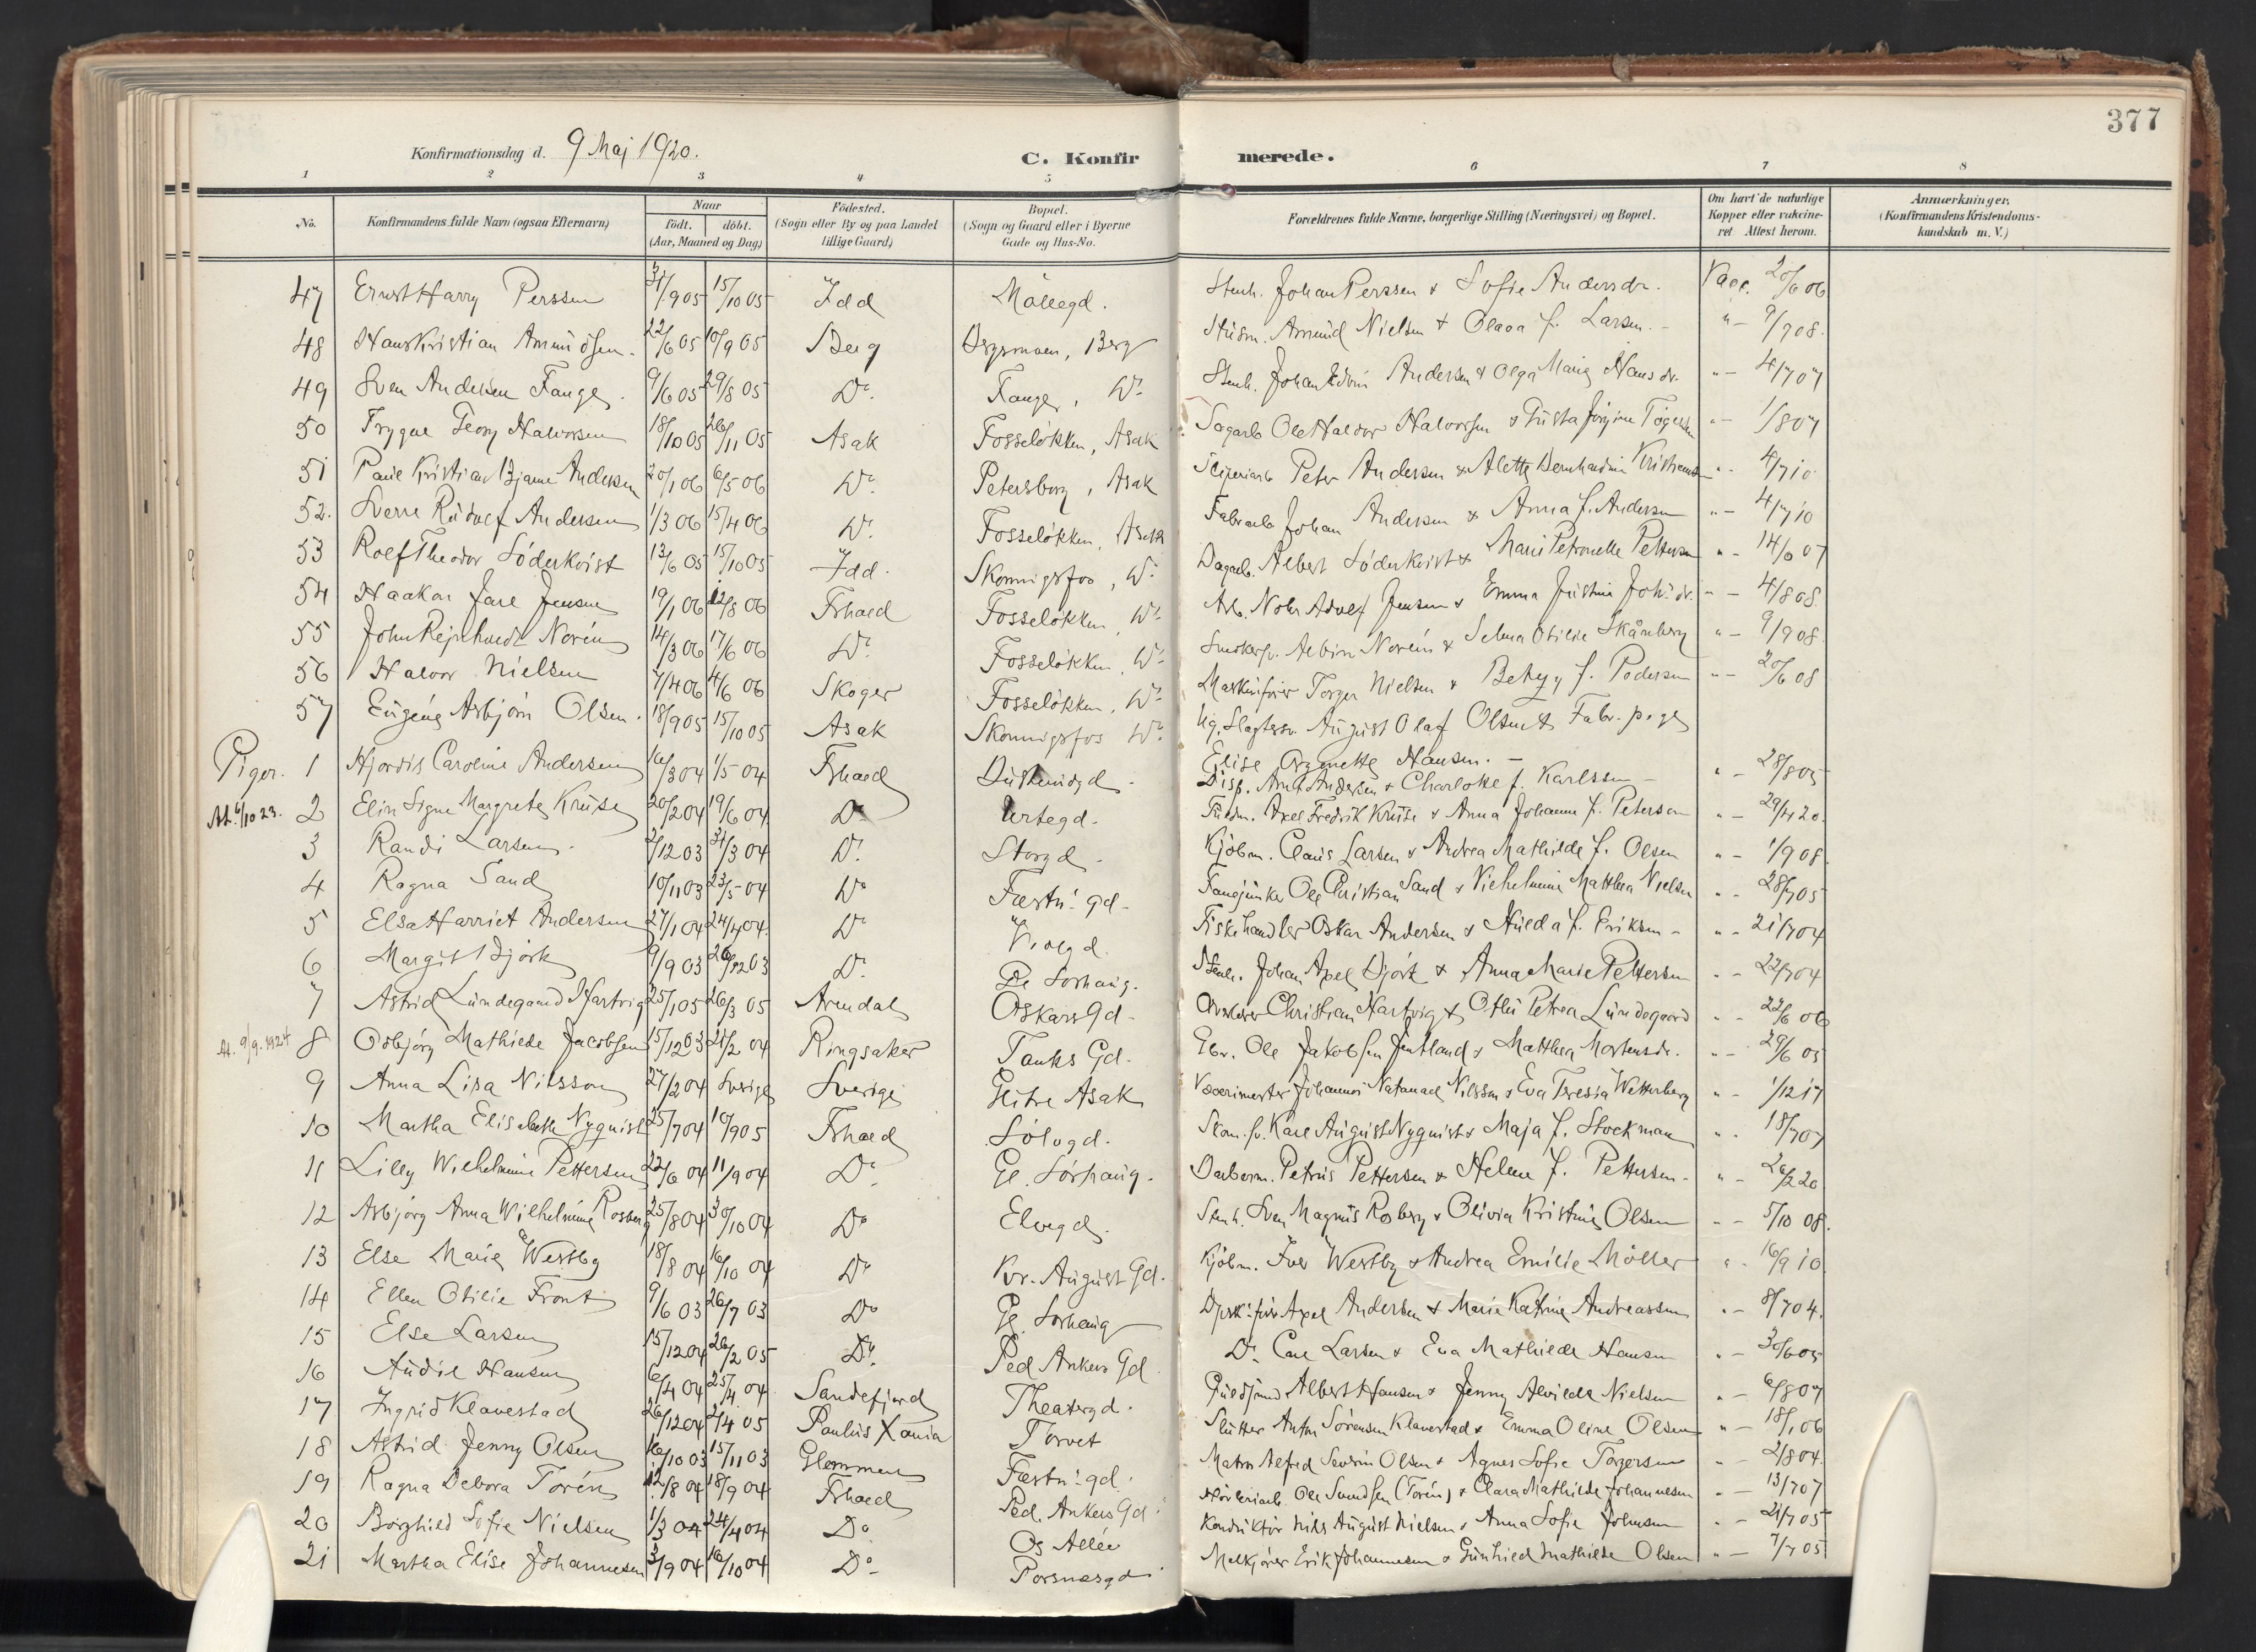 377
Konfirmationsdag d. 9 Maj 1920. C. Konfirmerede.
1 2 3 4 5 6 7 8
No. Konfirmandens fulde Navn (ogsaa Efternavn) Naar födt. döbt. (Aar, Maaned og Dag) Födested. (Sogn eller By og paa Landet tillige Gaard) Bopæl. (Sogn og Gaard eller i Byerne Gade og Hus-No. Forældrenes fulde Navne, borgerlige Stilling (Næringsvei) og Bopæl. Om havt de naturlige Kopper eller vakcineret Attest herom. Anmærkninger. (Konfirmandens Kristendomskundskab m. V.)
47 Ernst Harry Perssen 3/9 05 15/10 05 Idd Möllegd. Stenh. Johan Perssen & Sofie Andersdr. Vacc. 20/6 06
48 Hans Kristian Amundsen. 22/6 05 10/9 05 Berg Bergsmoen, Berg Husm. Amund Nielsen & Olava f. Larsen. " - 9/7 08.
49 Sven Andersen Fange. 9/6 05 29/8 05 Do. Fange, Do. Stenh. Johan Edvin Andersen & Olga Marie Hansdr. " - 4/7 07
50 Trygve Georg Halvorsen 18/10 05 26/11 05 Asak Fosselökken, Asak Sagarb. Ole Haldor Halvorsen & Gusta Jörgine " - 1/8 07
51 Paul Kristian Bjarne Andersen 20/1 06 6/5 06 Do. Petersborg, Asak Sliperiarb Peter Andersen & Alette Bernhardine " - 4/7 10
52. Sverre Rudolf Andersen 1/3 06 15/4 06 Do. Fosselökken, Asak Fabrarb Johan Andersen & Anna f. Andersen " - 4/7 10
53 Rolf Theodor Söderkvist 13/6 05 15/10 05 Idd. Skonnigsfos, Do. Dagarb. Albert Söderkvist & Marie Petronelle Pettersen " - 14/6 07
54 Haakon Jarl Jensen 19/1 06 12/8 06 Frhald Fosselökken Do. Arb. Nohr Adolf Jensen & Emma Justina Joh.dr. " - 4/8 08.
55 John Rejnhardt Norén 14/3 06 17/6 06 Do. Fosselökken, Do. Albin Norén & Selma Otilie Skånberg " - 9/9 08.
56 Halvor Nielsen 7/4 06 4/6 06 Skoger Fosselökken, Do. Maskinförer Torger Nielsen & Betzy f. Pedersen " - 20/6 08
57 Eugene Asbjörn Olsen. 18/9 05 15/10 05 Asak Skonnigsfos Do. Ug. Slagtersv. August Olaf Olsen & Fabr. pige
Elise Hansen. -
Piger. 1 Hjordis Caroline Andersen 16/3 04 1/5 04 Frhald Disp. Arnt Andersen & Charlotte f. Karlssen - " - 28/8 05
At. 6/10 23. 2 Elin Signe Margrete Kruse 20/2 04 19/6 04 Do. Urtegd. Axel Fredrik Kruse & Anna Johanne f. Peterson " - 29/4 20.
3 Randi Larsen. 2/12 03 31/3 04 Do. Storgd. Kjöbm. Claus Larsen & Andrea Mathilde f. Olsen " - 1/9 08.
4 Ragna Sand 10/11 03 23/5 04 Do Fæstn.gd. Fanejunker Ole Christian Sand & Vilhelmine Matthea Nielsen " - 28/7 05
5 Elsa Harriet Andersen 27/1 04 24/4 04. Do Violgd. Fiskehandler Oskar Andersen & Hulda f. Eriksen - " - 21/7 04
6 Margit Björk 9/9 03 26/12 03 Do. Gl Sörhaug. Stenh. Johan Axel Björk & Anna Marie Pettersen " - 22/7 04
7 Astrid Lundegaard Hartvig 25/1 05 26/3 05 Arendal Oskars Gd. Christian Hartvig & Othi Petrea Lundegaard " - 22/6 06
At. 9/9. 1924 8 Osbjörg Mathilde Jacobsen 15/12 03 21/2 04 Ringsaker Tanks Gd. Gbr. Ole Jakobsen Jentland & Matthea Mortensdr. " - 29/6 05
9 Anna Lisa Nilsson 27/2 04 Sverige Sverige Asak Væverimester Johannes Natanael Nilsson & Eva Teresia Wetterberg " - 1/12 17
10 Martha Elisabeth Nyquist 25/7 04 10/9 05 Frhald Sölvgd. Skom.sv. Karl August Nyquist & Maja f. Stockman " - 18/7 07
11 Lilly Wilhelmine Pettersen 22/6 04 11/9 04 Do. Gl. Sörhaug. Petrus Pettersen & Helene f. Pettersen. " - 26/2 20
12 Asbjörg Anna Wilhelmine Rosberg 25/8 04 30/10 04 Do Elvegd. Stenh. Sven Magnus Rosberg & Olivia Kristine Olsen " - 5/10 08.
13 Else Marie Westby 18/8 04 16/10 04 Do Kr. August Gd. Kjöbm. Iver Westby & Andrea Emilie Möller " - 16/9 10
14 Ellen Otilie Front 9/6 03 26/7 03 Do Gl. Sörhaug Axel Andersen & Marie Katrine Andreassen " - 8/7 04.
15 Else Larsen 15/12 04 26/2 05 Do. Ped Ankers Gd Do. Carl Larsen & Eva Mathilde Hansen " - 30/6 05
16 Audil Hansen 6/4 04 25/4 04 Sandefjord Theatergd. Guldsmed Albert Hansen & Jenny Alvilde Nielsen " - 6/8 07
17 Ingrid Klavestad 26/12 04 2/4 05 Paulus Xania Torvet Slutter Anton Sörensen Klavestad & Emma Oline Olsen " - 18/1 06
18 Astrid Jenny Olsen 16/10 03 15/11 03 Glemmen Fæstn.gd. Matros Alfred Severin Olsen & Agnes Sofie Torgersen " - 2/8 04.
19 Ragna Debora Torén 12/8 04 18/9 04 Frhald Ped. Ankers Gd. Ole Svendsen (Torén) & Clara Mathilde Johannesen " - 13/7 07
20 Borghild Sofie Nielsen 1/3 04 24/4 04 Do Os Allée Konduktör Nils August Nielsen & Anna Sofie Johnsen " - 21/7 05
21 Martha Elise Johannesen 3/9 04 16/10 04 Do - Porsnæsgd. Melkjører Erik Johannesen & Gunhild Mathilde Olsen " - 7/7 05